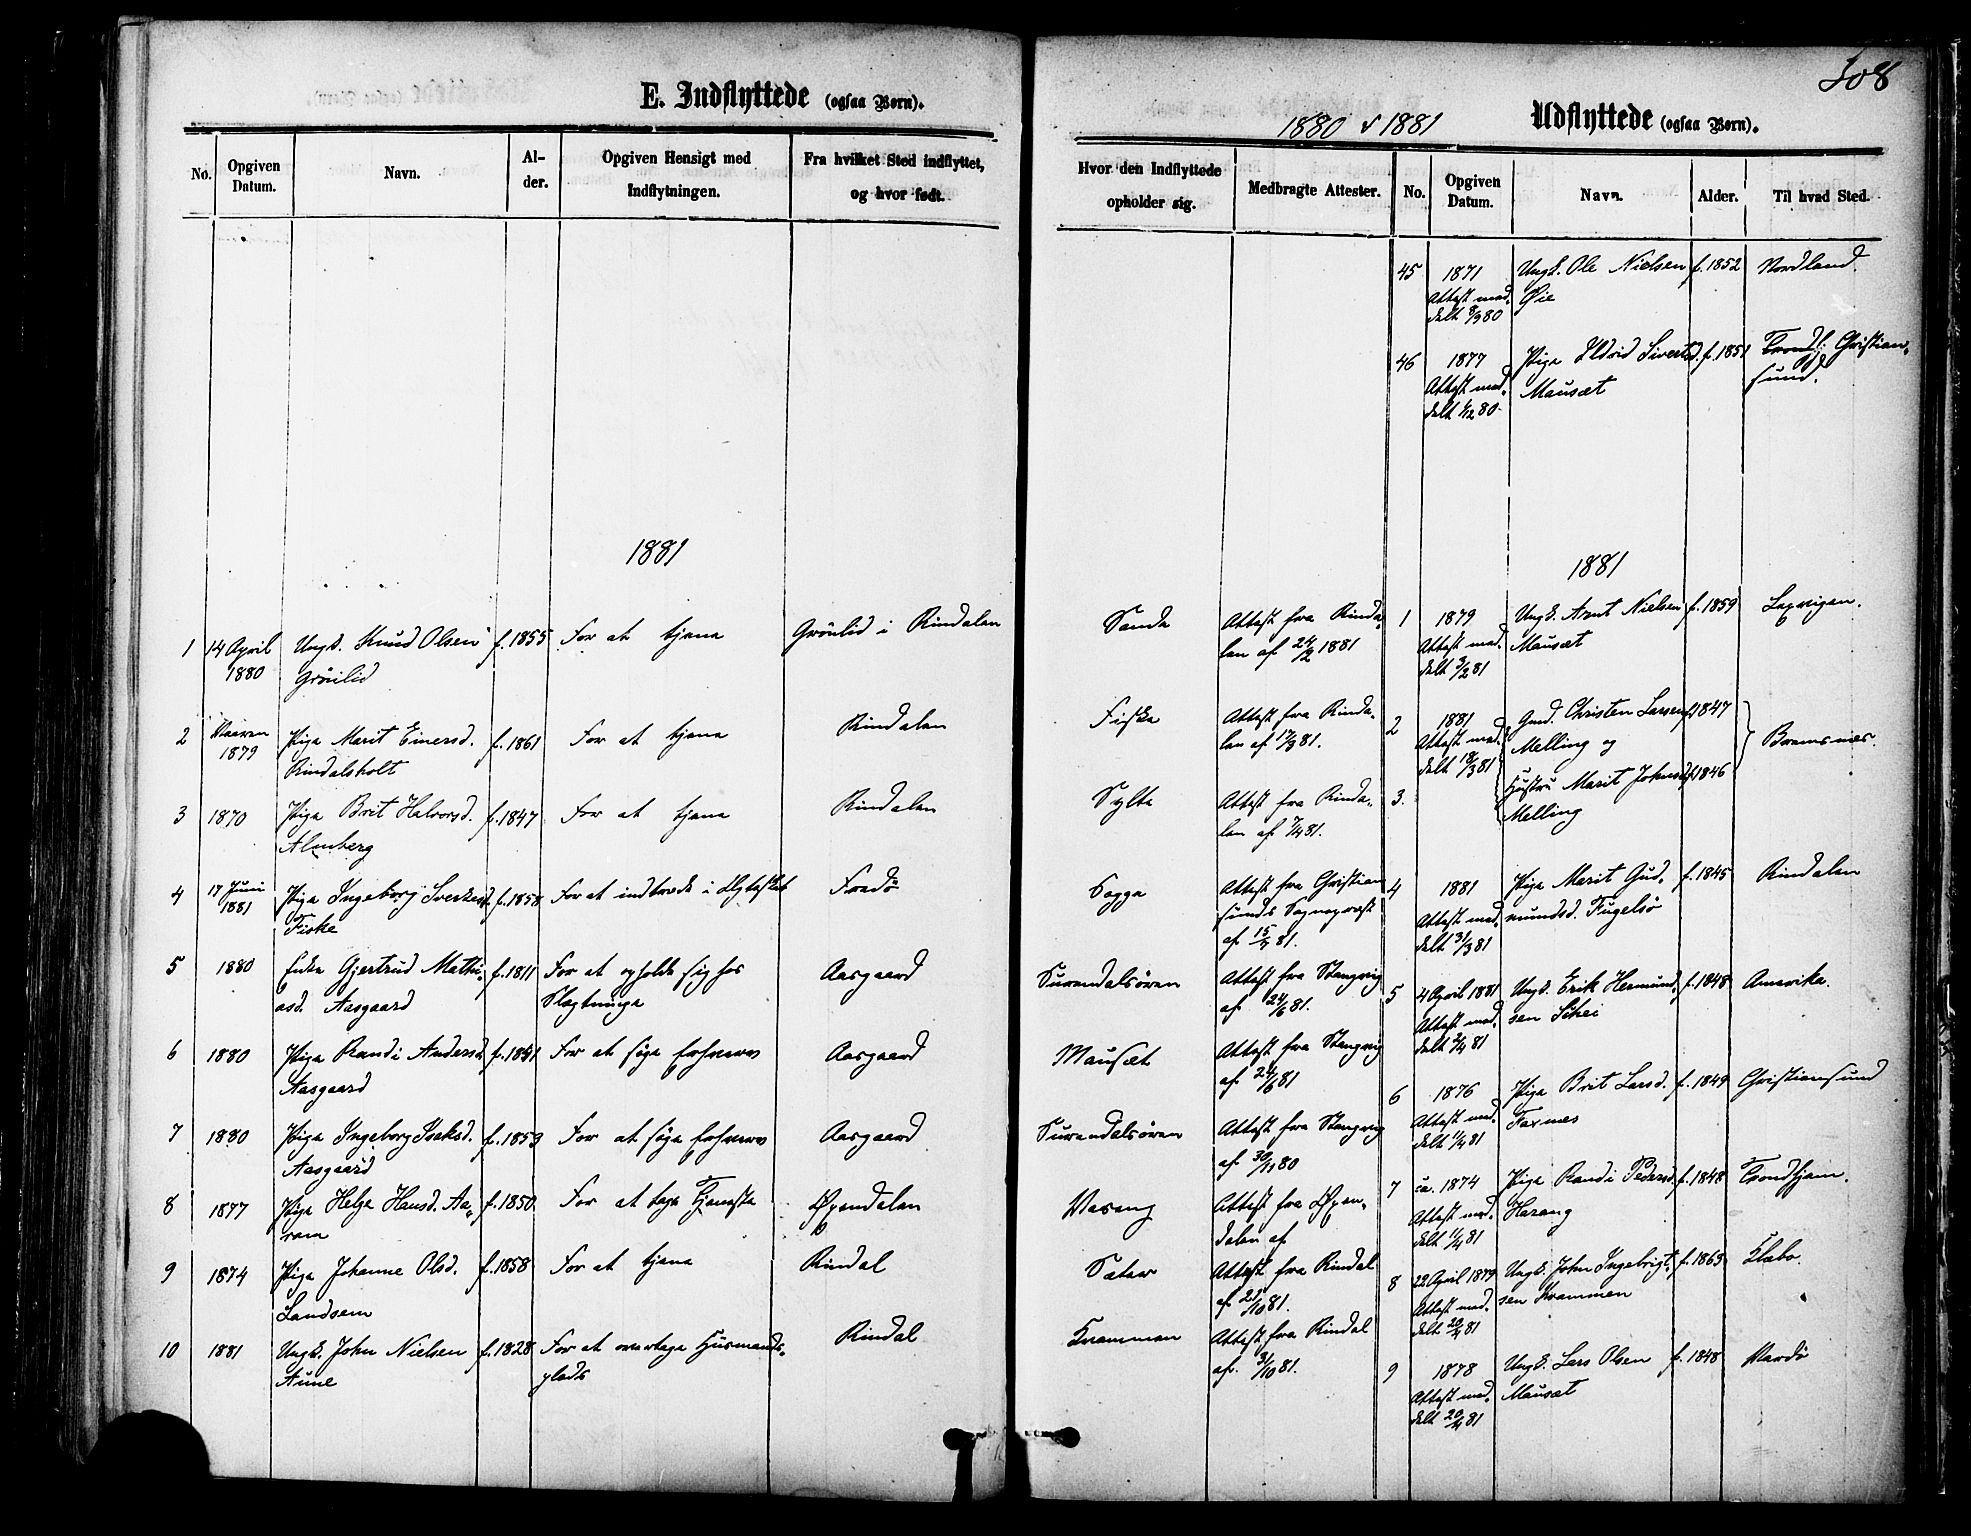 308
E. Indflyttede (ogsaa Børn).
1880 & 1881
Udflyttede (ogsaa Børn).
No.
Opgiven Datum.
Navn.
Alder.
Opgiven Hensigt med Indflytningen.
Fra hvilket Sted indflyttet, og hvor født.
Hvor den Indflyttede opholder sig.
Medbragte Attester.
No.
Opgiven Datum.
Navn.
Alder.
Til hvad Sted.
45 1871 Ungk. Ole Nielsen f. 1852 Nordland.
Attest med- Øie
delt 8/9 80
46 1877 Pige Ildrid Sivertsd. f. 1851 Trondhj. Christian-
Attest med- Mausæt sund.
delt 1/12 80.
1881
1 14 April Ungk. Knud Olsen f. 1855 For at tjene Grönlid i Rindalen Sande Attest fra Rinda-
1880 Grönlid len af 24/2 1881
2 1879 Pige Marit Einersd. f. 1861 For at tjene Rindalen Fiske Attest fra Rinda-
Rindalsholt len af 17/3 81.
3 1870 Pige Brit Halvorsd. f. 1847 For at tjene Rindalen Sylte Attest fra Rinda-
Almberg len af 7/4 81.
4 17 Juni Pige Ingeborg f. 1858 For at indtræde i Ægteskab Fredö Sogge Attest fra Christian-
1881 Fiske sunds Sognepræst
af 15/7 81.
5 1880 Enke Gjertrud Mathi- f. 1811 For at opholde sig hos Aasgaard Surendalsören Attest fra Stangvig
asd. Aasgaard Slægtninge af 24/6 81.
6 1880 Pige Randi Andersd. f. 1851 For at söge Erhverv Aasgaard Mausæt Attest fra Stangvig
Aasgaard af 24/6 81
7 1880 Pige Ingeborg f. 1853 For at söge Erhverv Aasgaard Surendalsören Attest fra Stangvig
Aasgaard af 30/11 80
8 1877 Pige Helge Hansd. Aa- f. 1850 For at tage Tjeneste Øxendalen Attest fra Øxen-
ram dalen af
9 1874 Pige Johanne Olsd. f. 1858 For at tjene Rindal Sæter Attest fra Rindal
Landsem af 21/10 81.
10 1881 Ungk. John Nielsen f. 1828 For at overtage Husmands- Rindal Kvammen Attest fra Rindal
Aune plads af 31/10 81.
1881
1 1879 Ungk. Arnt Nielsen f. 1859 Laxvigen.
Attest med- Mausæt
delt 3/2 81
2 1881 Gmd. Christen Larsen f. 1847
Attest med- Melling og Bremsnes.
delt 18/3 81
3. Hustru Marit Johnsd. f. 1846
Melling
4 1881 Pige Marit Gud- f. 1845 Rindalen
Attest med- mundsd. Fugelsö
delt 31/3 81
5 4 April 1881 Ungk. Erik Hermund- f. 1848 Amerika.
Attest med- sen Schei
delt 2/4 81
6 1876 Pige Brit Larsd. f. 1849 Christiansund
Attest med- Faxnes
delt 11/4 81
7 ca. 1874 Pige Randi Pedersd. f. 1848 Trondhjem.
Attest med- Harang
delt 11/4 81
8 22 April 1879 Ungk. John Ingebrigt- f. 1863 Klæbo.
Attest med- sen Kvammen
delt 20/4 81
9 1878 Ungk. Lars Olsen f. 1848 Vardö
Attest med- Mausæt
delt 20/4 81